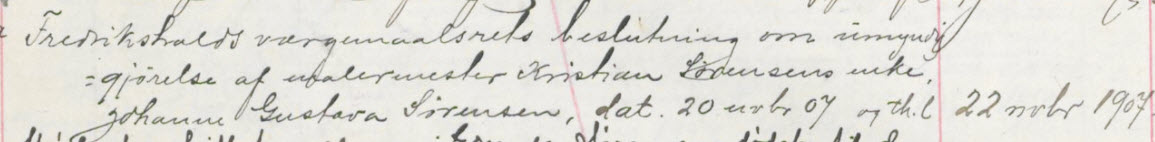 Fredrikshalds værgemaalsrets beslutning om umyndig
=gjørelse af malermester Kristian Sørensens enke,
Johanne Gustava Sørensen, dat. 20 novbr 07 og th.l 22 novbr 1907.